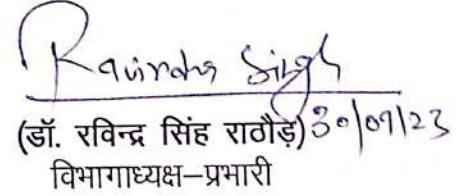 Ravindra Singh
(डॉ. रविन्द्र सिंह राठौड़) 30/09/23
विभागाध्यक्ष–प्रभारी